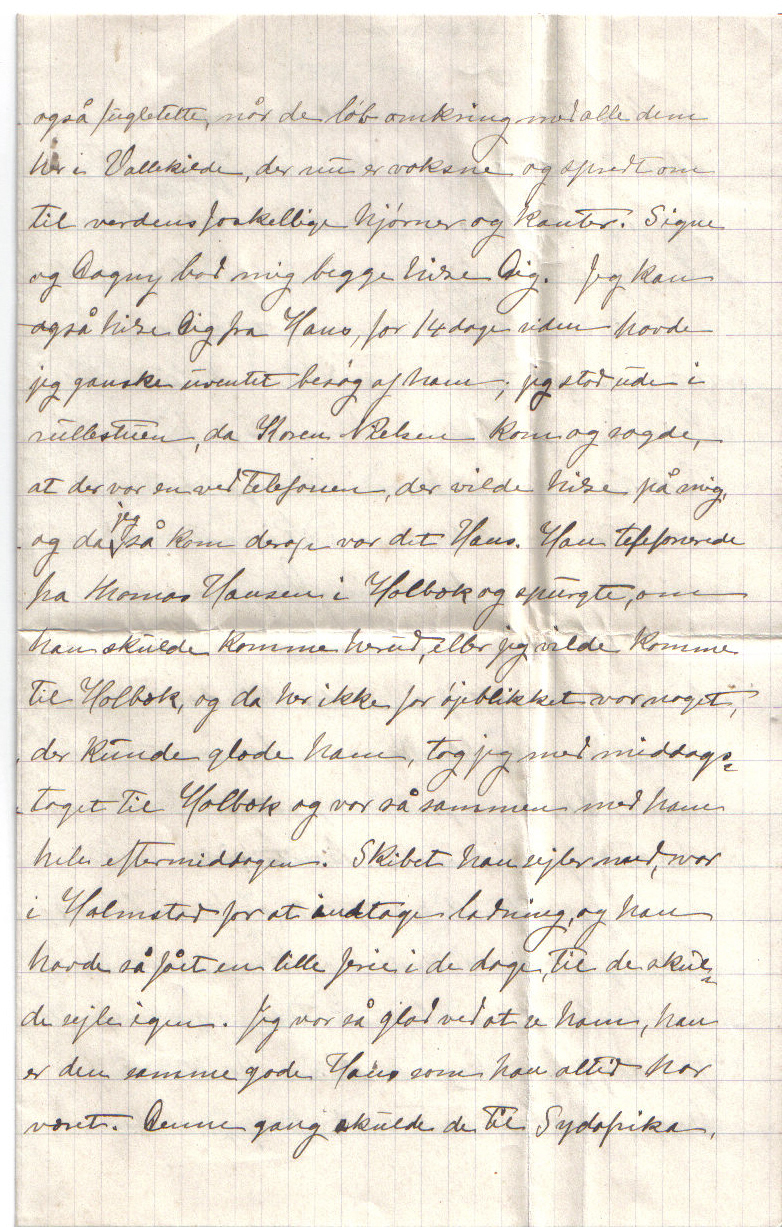 også fugletætte, når de løb omkring med alle dem
her i Vallekilde, der nu er voksne og spredt om
til verdens forskellige hjørner og kanter. Signe
og Dagny bad mig begge hilse Dig. Jeg kan
også hilse Dig fra Hans, for 14 dage siden havde
jeg ganske uventet besøg af ham; jeg stod ude i
rullestuen, da Karen Nielsen kom og sagde,
at der var en ved Telefonen, der vilde hilse på mig,
og da jeg så kom derop var det Hans. Han telefonerede
fra Thomas Hansen i Holbæk og spurgte, om
han skulde komme herud, eller jeg vilde komme
til Holbæk, og da her ikke for øjeblikket var noget,
der kunde glæde ham, tog jeg med middags=
toget til Holbæk og var så sammen med ham
hele eftermiddagen. Skibet han sejler med, var
i Halmstad for at indtage ladning, og han
havde så fået en lille ferie i de dage, til de skul=
de sejle igen. Jeg var så glad ved at se ham, han
er den samme gode Hans som han altid har
været. Denne gang skulde de til Sydafrika,